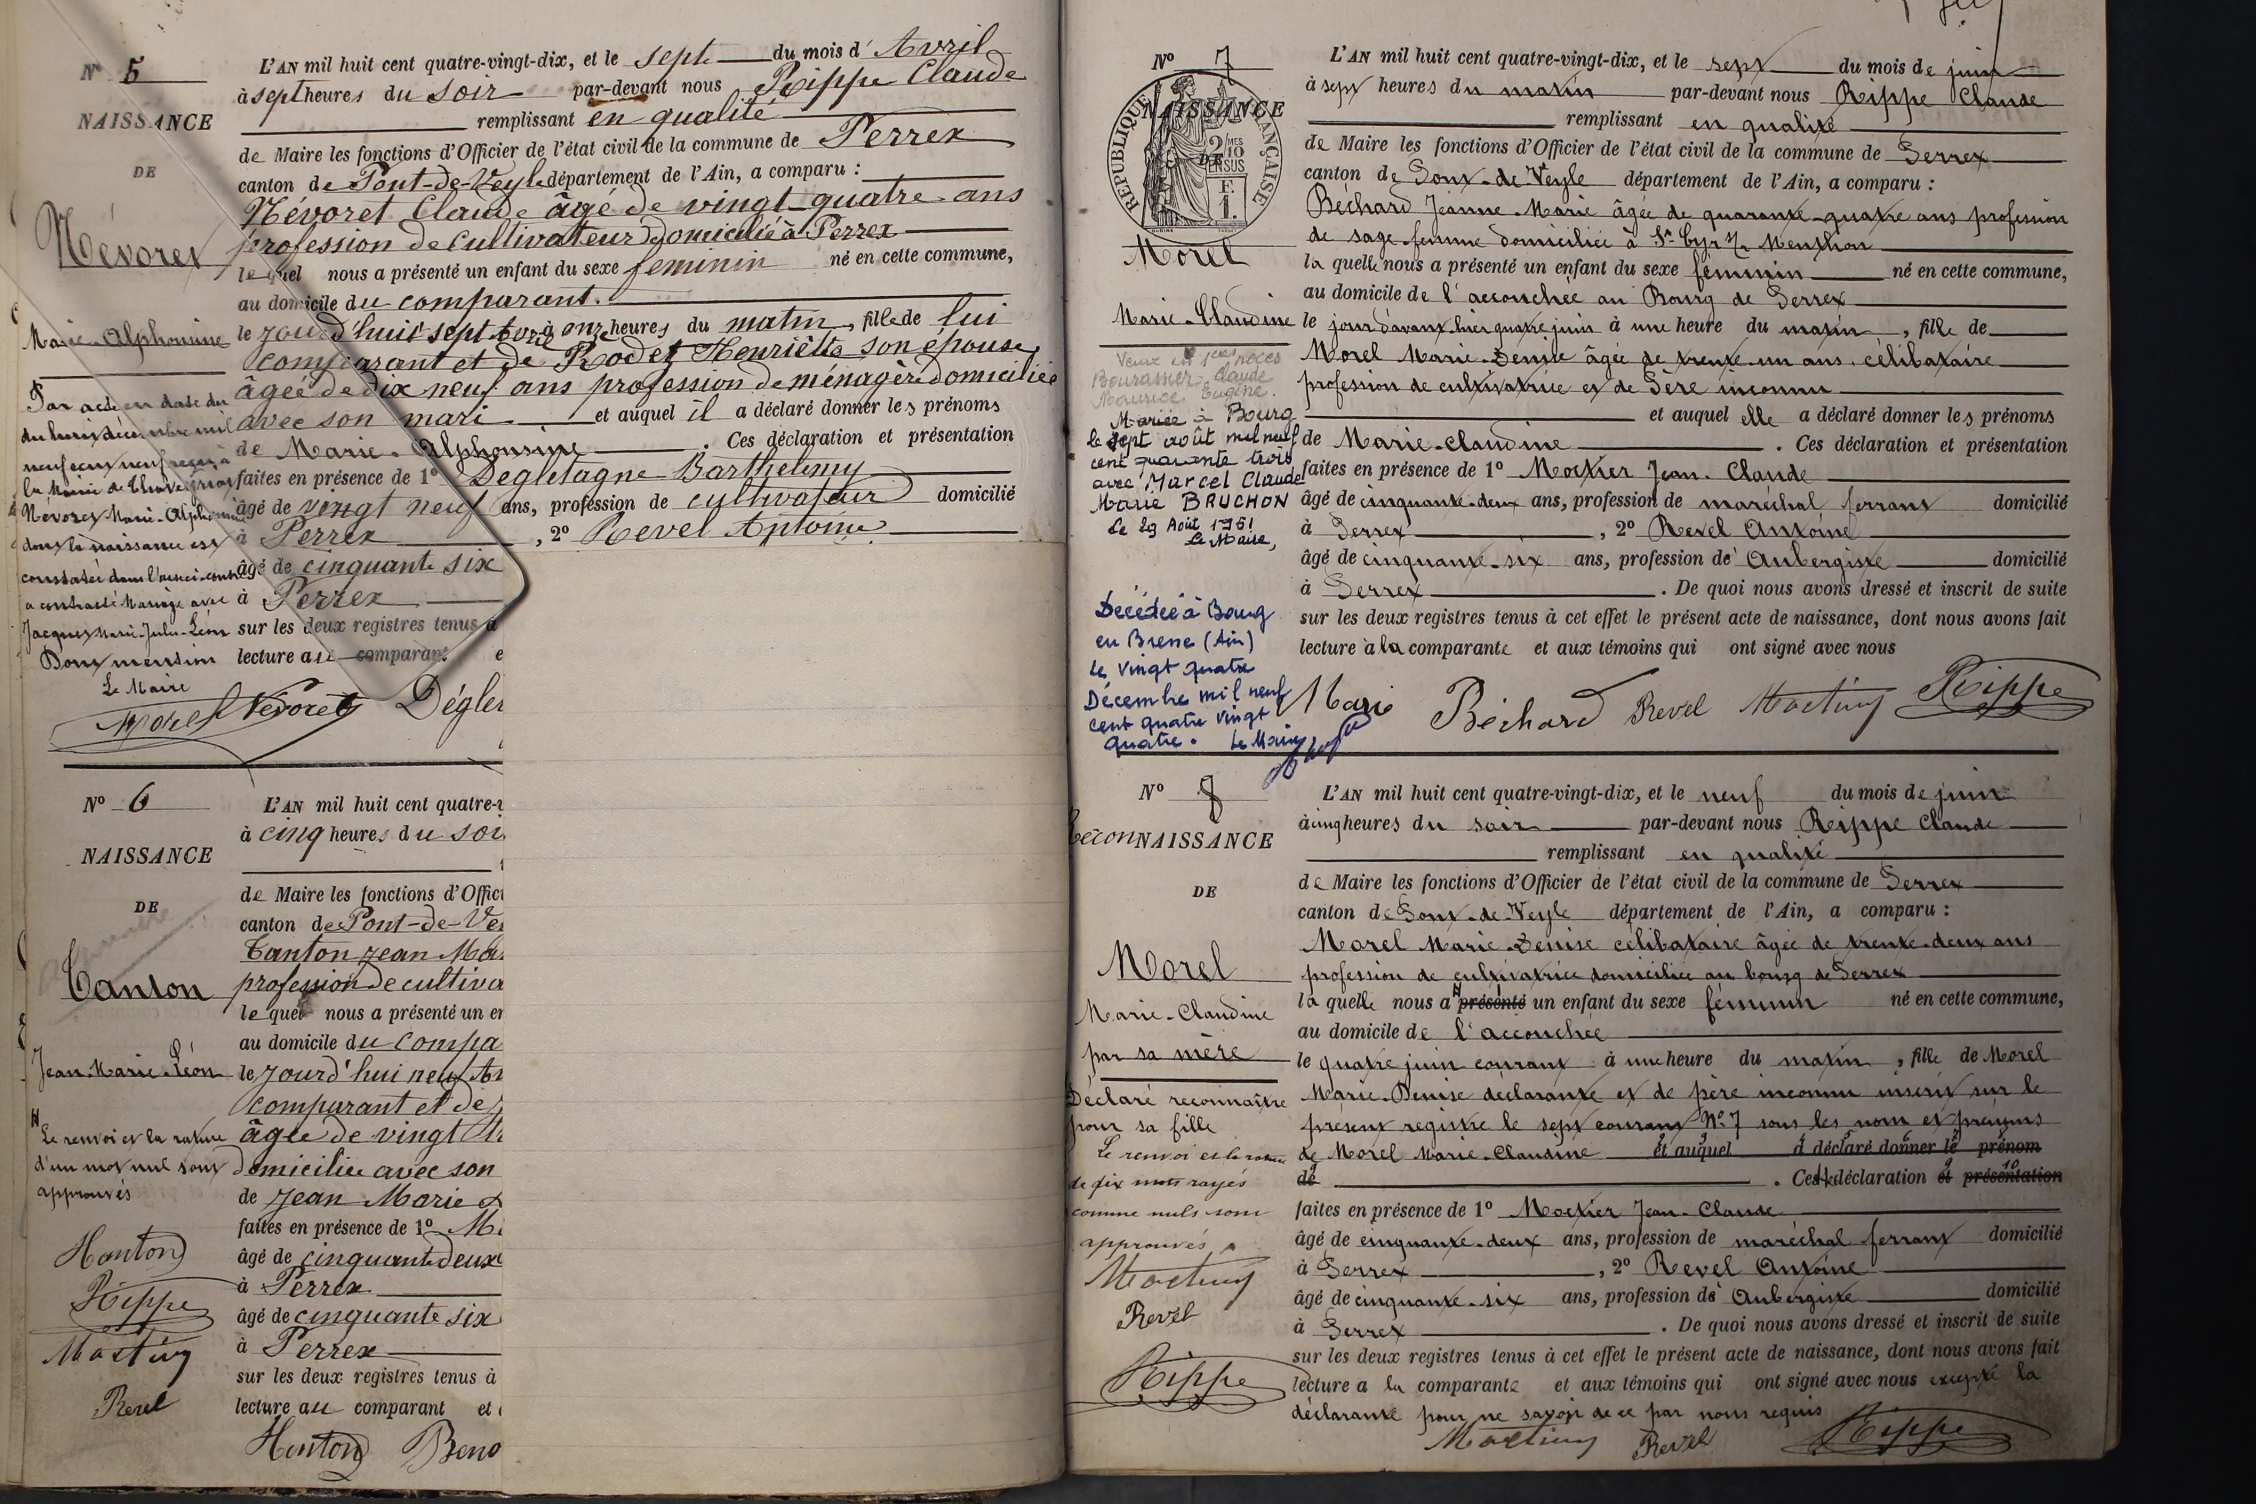 N° 5
NAISSANCE
DE
Névoret
Marie-Alphonsine
Par acte en date du
du trois décembre mil
neuf cent neuf reçu à
la Mairie de
Névoret Marie-Alphonsine
dont la naissance est
constatée dans l'acte ci-contre
a contracté Mariage avec
Jacques Marie-Jules-Léon
Dont mention
Le Maire
Morel
L'AN mil huit cent quatre-vingt-dix, et le sept du mois d'Avril
à sept heures du soir par-devant nous Rippe Claude
remplissant en qualité
de Maire les fonctions d'Officier de l'état civil de la commune de Perrex
canton de Pont-de-Veyle département de l'Ain, a comparu :
Névoret Claude âgé de vingt-quatre ans
profession de cultivateur domicilié à Perrex
lequel nous a présenté un enfant du sexe féminin né en cette commune,
au domicile du comparant.
le jourd'hui sept Avril à onze heures du matin, fille de lui
comparant et de Rodet Henriette son épouse
âgée de dix neuf ans profession de ménagère domiciliée
avec son mari et auquel il a déclaré donner les prénoms
de Marie-Alphonsine. Ces déclaration et présentation
faites en présence de 1° Degletagne Barthelemy
âgé de vingt neuf ans, profession de cultivateur domicilié
à Perrex, 2° Revel Antoine
âgé de cinquante six
à Perrex
sur les deux registres tenus à
lecture au comparant e
Névoret Dégler
N° 6
NAISSANCE
DE
Tanton
Jean-Marie-Léon
Le renvoi et la rature
d'un mot nul sont
approuvés
Tanton
Rippe
Revel
L'AN mil huit cent quatre-v
à cinq heures du soir
de Maire les fonctions d'Offici
canton de Pont-de-Vey
Tanton Jean Mar
profession de cultiva
lequel nous a présenté un en
au domicile du compa
le jourd'hui neuf Av
comparant et de
âgée de vingt
domiciliée avec son
de Jean Marie
faites en présence de 1° M
âgé de cinquante deux
à Perrex
âgé de cinquante six
à Perrex
sur les deux registres tenus à
lecture au comparant et
Tanton
N° 7
NAISSANCE
DE
REPUBLIQUE FRANÇAISE
2/10 EN SUS
F. 1.
Morel
Marie-Claudine
Veuve en 1res noces
Bourassier Claude
Maurice Eugène.
Mariée à Bourg
le sept août mil neuf
cent quarante trois
avec Marcel Claude
Marie BRUCHON
Le 29 Août 1961
Le Maire,
Décédée à Bourg
en Bresse (Ain)
le vingt quatre
Décembre mil neuf
cent quatre vingt
quatre. Le Maire,
L'AN mil huit cent quatre-vingt-dix, et le sept du mois de juin
à sept heures du matin par-devant nous Rippe Claude
remplissant en qualité
de Maire les fonctions d'Officier de l'état civil de la commune de Perrex
canton de Pont-de-Veyle département de l'Ain, a comparu :
Béchard Jeanne-Marie âgée de quarante-quatre ans profession
de sage-femme domiciliée à St Cyr s/ Menthon
la quelle nous a présenté un enfant du sexe féminin né en cette commune,
au domicile de l'accouchée au Bourg de Perrex
le jour d'avant-hier quatre juin à une heure du matin, fille de
Morel Marie-Denise âgée de trente-un ans, célibataire
profession de cultivatrice et de Père inconnu
et auquel elle a déclaré donner les prénoms
de Marie-Claudine. Ces déclaration et présentation
faites en présence de 1° Jean-Claude
âgé de cinquante-deux ans, profession de maréchal ferrant domicilié
à Perrex, 2° Revel Antoine
âgé de cinquante-six ans, profession de Aubergiste domicilié
à Perrex. De quoi nous avons dressé et inscrit de suite
sur les deux registres tenus à cet effet le présent acte de naissance, dont nous avons fait
lecture à la comparante et aux témoins qui ont signé avec nous
Marie Béchard Revel Rippe
N° 8
Reconnaissance
DE
Morel
Marie-Claudine
par sa mère
Déclaré reconnaître
pour sa fille
Le renvoi et la rature
de dix mots rayés
comme nuls sont
approuvés
Revel
Rippe
L'AN mil huit cent quatre-vingt-dix, et le neuf du mois de juin
à cinq heures du soir par-devant nous Rippe Claude
remplissant en qualité
de Maire les fonctions d'Officier de l'état civil de la commune de Perrex
canton de Pont-de-Veyle département de l'Ain, a comparu :
Morel Marie-Denise célibataire âgée de trente-deux ans
profession de cultivatrice domiciliée au bourg de Perrex
la quelle nous a présenté un enfant du sexe féminin né en cette commune,
au domicile de l'accouchée
le quatre juin courant à une heure du matin, fille de Morel
Marie-Denise déclarante et de père inconnu inscrit sur le
présent registre le sept courant N° 7 sous les nom et prénoms
de Morel Marie-Claudine et auquel a déclaré donner le prénom
de . Cette déclaration et présentation
faites en présence de 1° Jean-Claude
âgé de cinquante-deux ans, profession de maréchal ferrant domicilié
à Perrex, 2° Revel Antoine
âgé de cinquante-six ans, profession de Aubergiste domicilié
à Perrex. De quoi nous avons dressé et inscrit de suite
sur les deux registres tenus à cet effet le présent acte de naissance, dont nous avons fait
lecture a la comparante et aux témoins qui ont signé avec nous excepté la
déclarante pour ne savoir de ce par nous requis
Revel Rippe